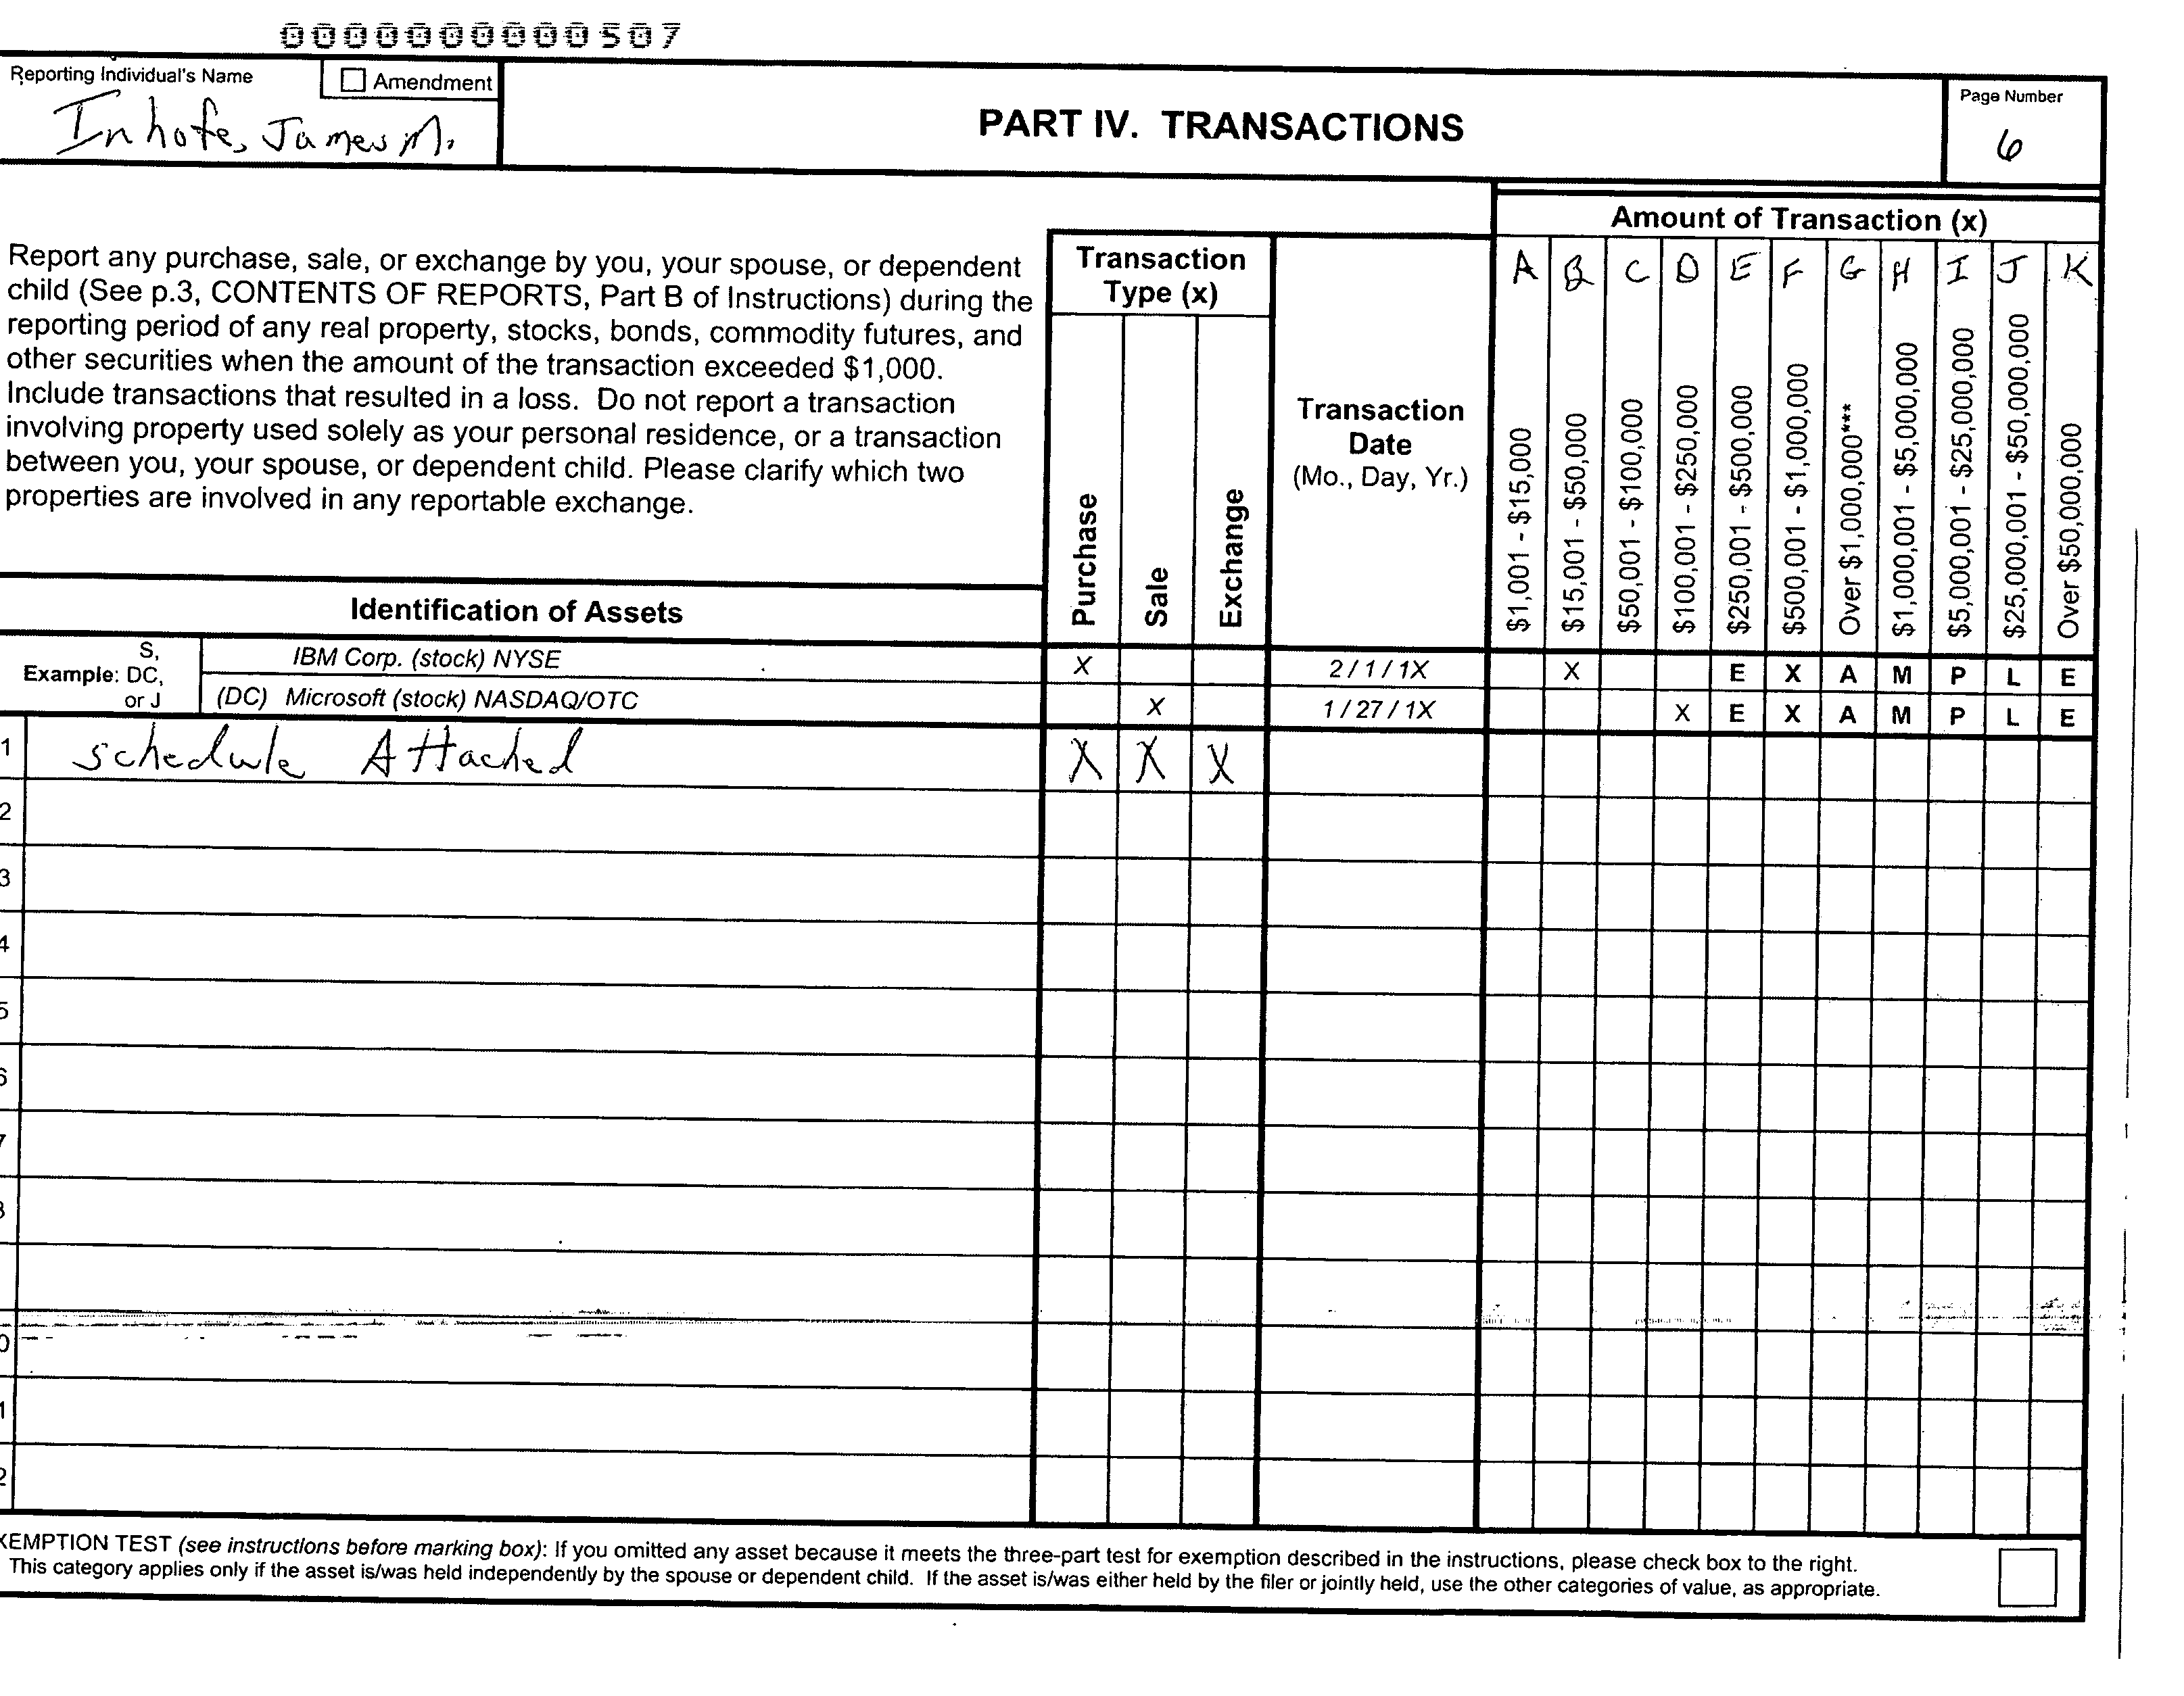 0000000000507
Reporting Individual's Name
☐ Amendment
Inhofe, James M.
PART IV. TRANSACTIONS
Page Number
6
Amount of Transaction (x)
Report any purchase, sale, or exchange by you, your spouse, or dependent
child (See p.3, CONTENTS OF REPORTS, Part B of Instructions) during the
reporting period of any real property, stocks, bonds, commodity futures, and
other securities when the amount of the transaction exceeded $1,000.
Include transactions that resulted in a loss. Do not report a transaction
involving property used solely as your personal residence, or a transaction
between you, your spouse, or dependent child. Please clarify which two
properties are involved in any reportable exchange.
Transaction
Type (x)
Purchase
Sale
Exchange
Transaction
Date
(Mo., Day, Yr.)
A B C D E F G H I J K
$1,001 - $15,000
$15,001 - $50,000
$50,001 - $100,000
$100,001 - $250,000
$250,001 - $500,000
$500,001 - $1,000,000
Over $1,000,000***
$1,000,001 - $5,000,000
$5,000,001 - $25,000,000
$25,000,001 - $50,000,000
Over $50,000,000
Identification of Assets
Example: S,
DC,
or J
IBM Corp. (stock) NYSE X 2 / 1 / 1X X E X A M P L E
(DC) Microsoft (stock) NASDAQ/OTC X 1 / 27 / 1X X E X A M P L E
1 Schedule Attached X X X
2
3
4
5
6
7
8
0
1
2
XEMPTION TEST (see instructions before marking box): If you omitted any asset because it meets the three-part test for exemption described in the instructions, please check box to the right.
This category applies only if the asset is/was held independently by the spouse or dependent child. If the asset is/was either held by the filer or jointly held, use the other categories of value, as appropriate.